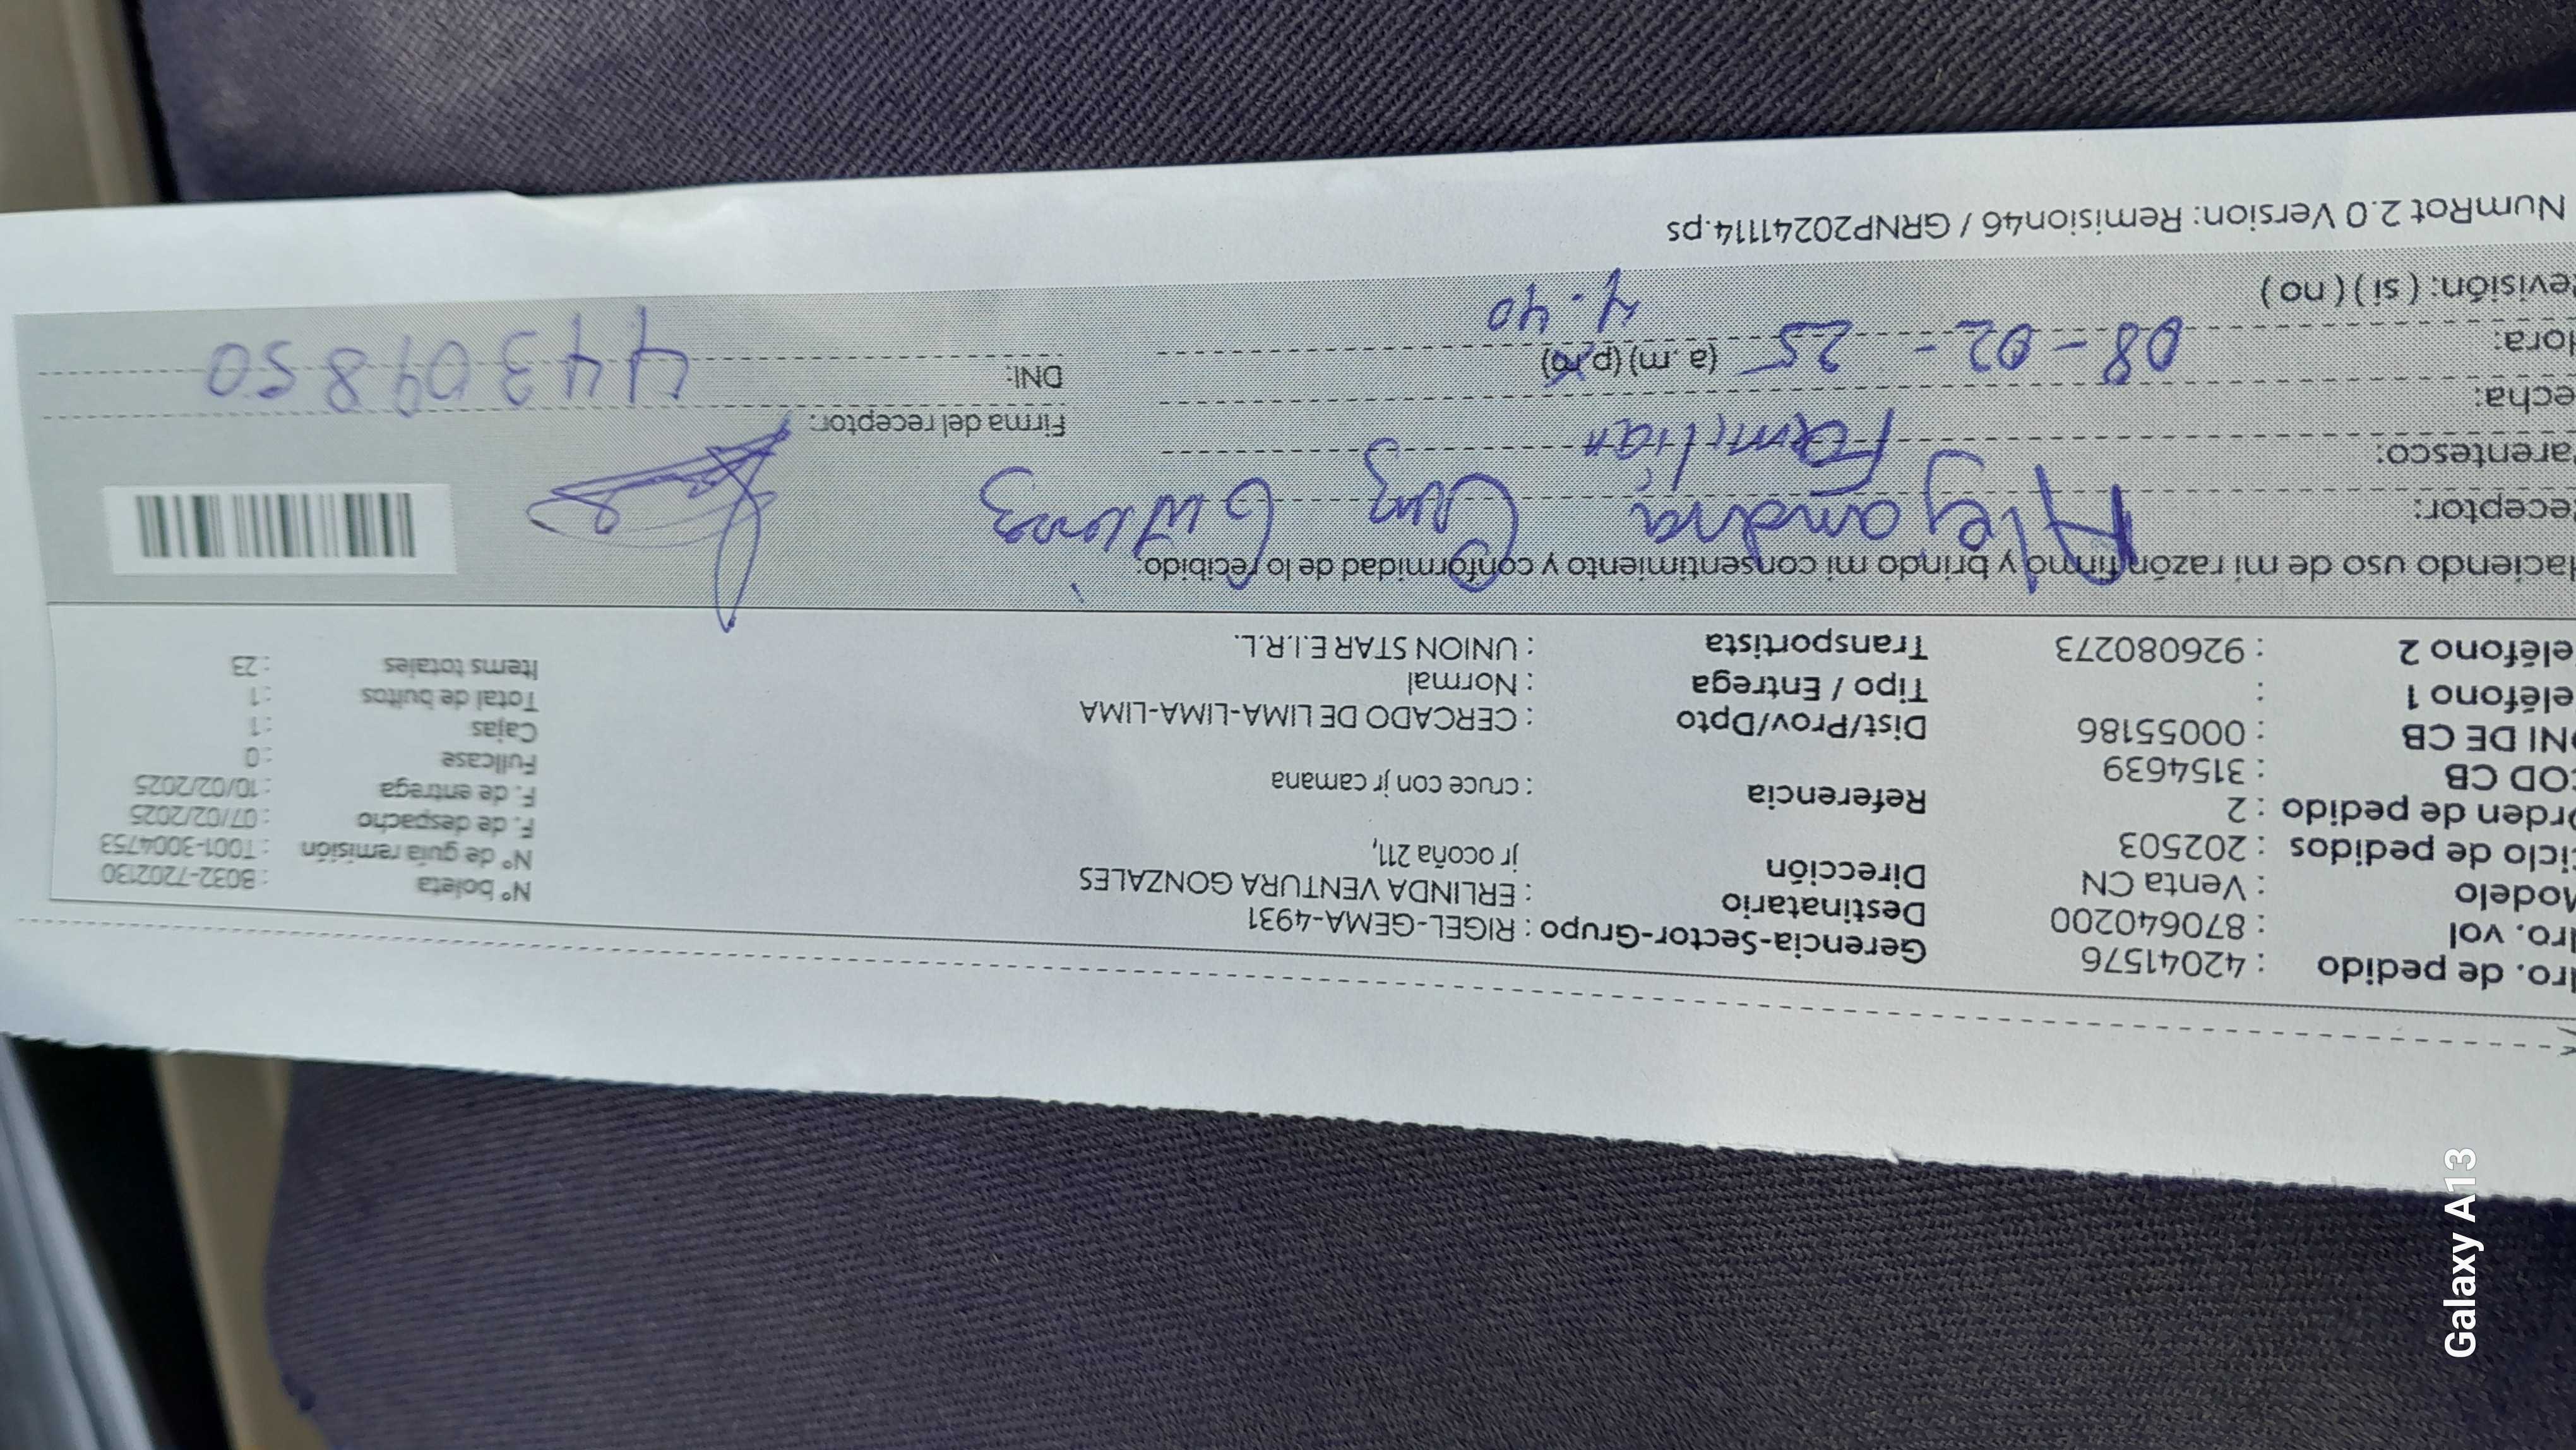 ro. de pedido : 42041576
ro. vol : 870640200
Modelo : Venta CN
iclo de pedidos : 202503
rden de pedido : 2
OD CB : 3154639
NI DE CB : 00055186
eléfono 1 :
eléfono 2 : 926080273
Gerencia-Sector-Grupo : RIGEL-GEMA-4931
Destinatario : ERLINDA VENTURA GONZALES
Dirección jr ocoña 211,
Referencia : cruce con jr camana
Dist/Prov/Dpto : CERCADO DE LIMA-LIMA-LIMA
Tipo / Entrega : Normal
Transportista : UNION STAR E.I.R.L.
Nº boleta : B032-7202130
Nº de guía remisión : T001-3004753
F. de despacho : 07/02/2025
F. de entrega : 10/02/2025
Fullcase : 0
Cajas : 1
Total de bultos : 1
Items totales : 23
Haciendo uso de mi razón firmo y brindo mi consentimiento y conformidad de lo recibido:
eceptor: Alejandra Cruz
arentesco: Familiar
echa: 08-02-25
ora: (a.m) (p.m) 4.40
evisión: (si) (no)
Firma del receptor:
DNI: 44309850
NumRot 2.0 Version: Remision46 / GRNP20241114.ps
Galaxy A13